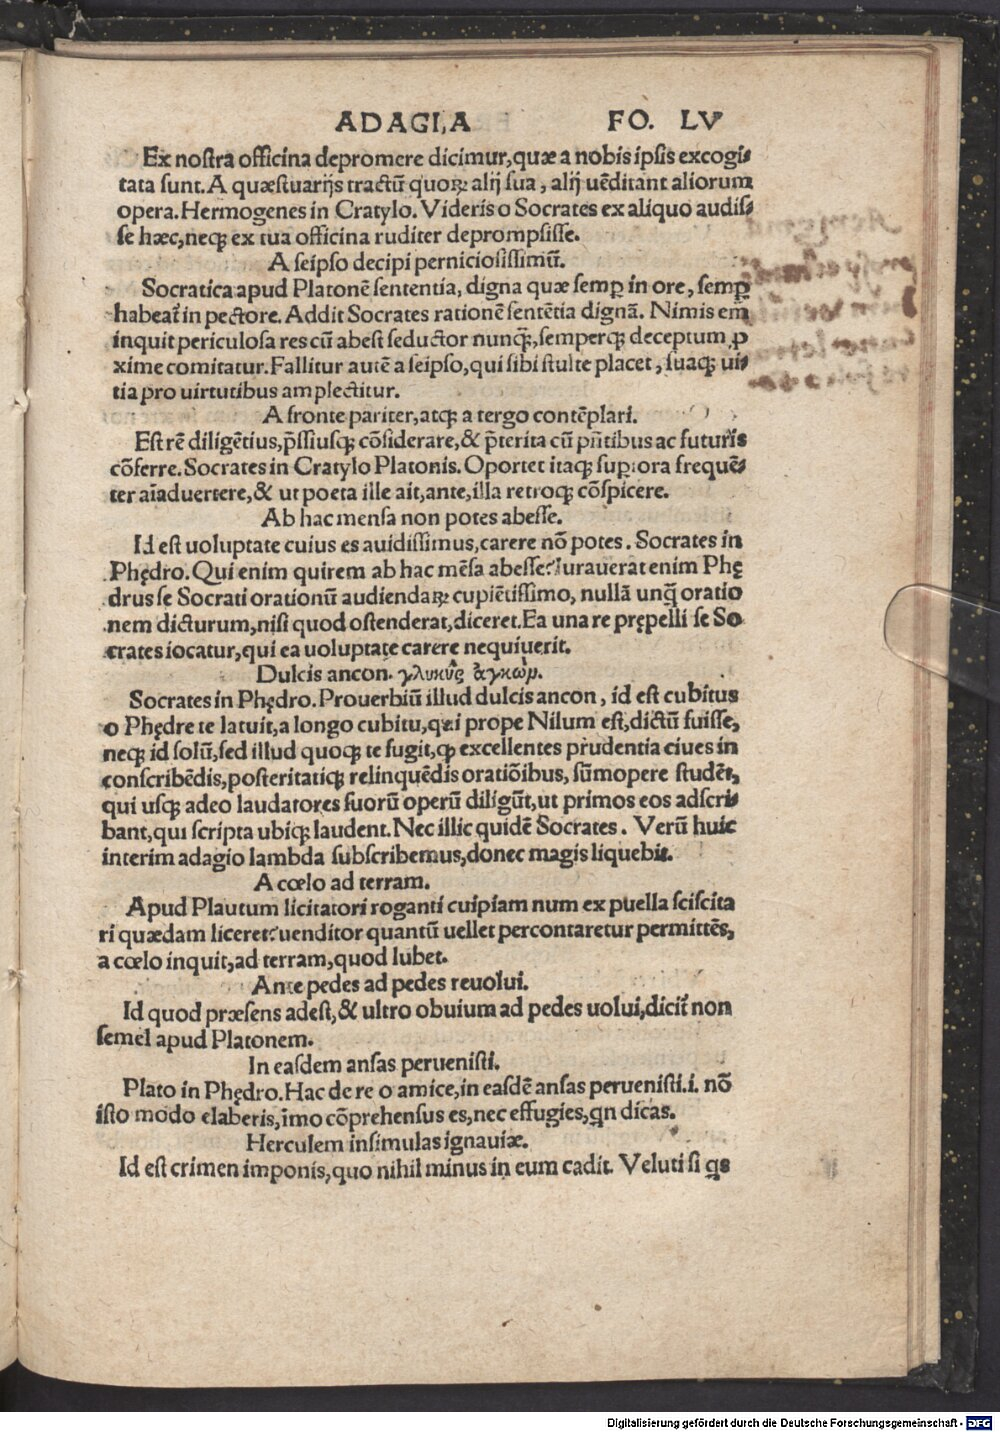 ADAGI,A FO. LV
Ex nostra officina depromere dicimur,quæ a nobis ipsis excogi⸗
tata sunt. A quæstuarijs tractū quoꝝ alij sua, alij uēditant aliorum
opera. Hermogenes in Cratylo. Videris o Socrates ex aliquo audis⸗
se hæc,neqꝫ ex tua officina ruditer deprompsisse.
A seipso decipi perniciosissimū.
Socratica apud Platonē sententia, digna quæ semꝑ in ore, semꝑ
habeat᷑ in pectore. Addit Socrates rationē sentētia dignā. Nimis em̄
inquit periculosa res cū abest seductor nunqꝫ̄,semperqꝫ deceptum ꝓ
xime comitatur. Fallitur autē a seipso,qui sibi stulte placet, suaqꝫ ui⸗
tia pro uirtutibus amplectitur.
A fronte pariter,atqꝫ a tergo contēplari.
Est rē diligētius,p̄ssiusqꝫ cōsiderare,& p̄terita cū pn̄tibus ac futuris
cōferre. Socrates in Cratylo Platonis. Oportet itaqꝫ suꝑiora frequē⸗
ter aīaduertere,& ut poeta ille ait,ante,illa retroqꝫ cōspicere.
Ab hac mensa non potes abesse.
Id est uoluptate cuius es auidissimus,carere nō potes. Socrates in
Phędro. Qui enim quirem ab hac mēsa abesse? Iurauerat enim Phę
drus se Socrati orationū audiendaꝝ cupiētissimo, nullā unq̄ oratio
nem dicturum,nisi quod ostenderat,diceret. Ea una re prępelli se So
crates iocatur,qui ea uoluptate carere nequiuerit.
Dulcis ancon. γλυκὺς ἀγκὼν.
Socrates in Phędro. Prouerbiū illud dulcis ancon, id est cubitus
o Phędre te latuit,a longo cubitu,qui prope Nilum est,dictū fuisse,
neqꝫ id solū,sed illud quoqꝫ te fugit,ꝙ excellentes prudentia ciues in
conscribēdis,posteritatiqꝫ relinquēdis oratiōibus, sūmopere studēt,
qui usqꝫ adeo laudatores suorū operū diligūt,ut primos eos adscri⸗
bant,qui scripta ubiqꝫ laudent. Nec illic quidē Socrates. Verū huic
interim adagio lambda subscribemus,donec magis liquebit.
A cœlo ad terram.
Apud Plautum licitatori roganti cuipiam num ex puella sciscita
ri quædam liceret? uenditor quantū uellet percontaretur permittēs,
a cœlo inquit,ad terram,quod lubet.
Ante pedes ad pedes reuolui.
Id quod præsens adest,& ultro obuium ad pedes uolui,dicit᷑ non
semel apud Platonem.
In easdem ansas peruenisti.
Plato in Phędro. Hac de re o amice,in easdē ansas peruenisti.i. nō
isto modo elaberis,īmo cōprehensus es,nec effugies,qn dicas.
Herculem insimulas ignauiæ.
Id est crimen imponis,quo nihil minus in eum cadit. Veluti si qs
Digitalisierung gefördert durch die Deutsche Forschungsgemeinschaft - DFG